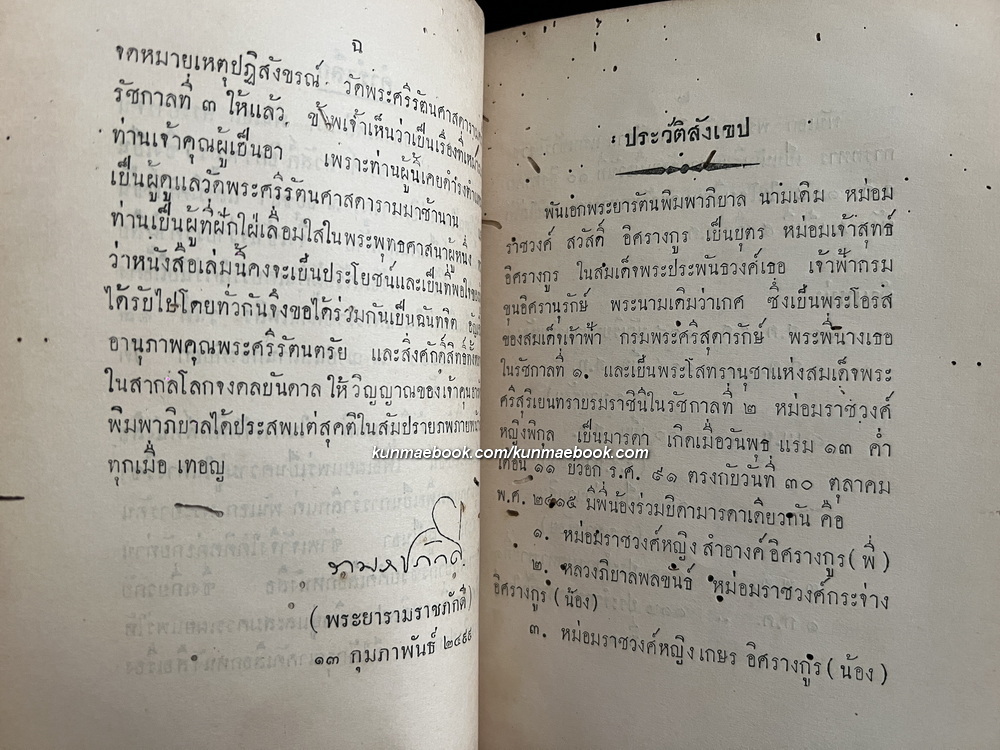 ฉ
จดหมายเหตุปฏิสังขรณ์ วัดพระศรีรัตนศาสดาราม
รัชกาลที่ ๓ ให้แล้ว ข้าพเจ้าเห็นว่าเป็นเรื่องที่
ท่านเจ้าคุณผู้เป็นอา เพราะท่านผู้นี้เคยดำรง
เป็นผู้ดูแลวัดพระศรีรัตนศาสดารามมาช้านาน
ท่านเป็นผู้ที่ฝักใฝ่เลื่อมใสในพระพุทธศาสนาผู้หนึ่ง
ว่าหนังสือเล่มนี้คงจะเป็นประโยชน์และเป็นที่พอใจ
ได้รับไปโดยทั่วกันจึงขอได้ร่วมกันเป็นฉันทจิต
อานุภาพคุณพระศรีรัตนตรัย และสิ่งศักดิ์สิทธิ์ทั้ง
ในสากลโลกจงดลบันดาล ให้วิญญาณของเจ้าคุณ
พิมพาภิบาลได้ประสพแต่สุคติในสัมปรายภพภายหน้า
ทุกเมื่อ เทอญ
รามราชภักดี
(พระยารามราชภักดี)
๑๓ กุมภาพันธ์ ๒๔๙๙
ประวัติสังเขป
พันเอกพระยารัตนพิมพาภิบาล นามเดิม หม่อม
ราชวงศ์ สวัสดิ์ อิศรางกูร เป็นบุตร หม่อมเจ้าสุทธิ์
อิศรางกูร ในสมเด็จพระประพันธวงศ์เธอ เจ้าฟ้ากรม
ขุนอิศรานุรักษ์ พระนามเดิมว่าเกศ ซึ่งเป็นพระโอรส
ของสมเด็จเจ้าฟ้า กรมพระศรีสุดารักษ์ พระพี่นางเธอ
ในรัชกาลที่ ๑. และเป็นพระโสทรานุชาแห่งสมเด็จพระ
ศรีสุริเยนทราบรมราชินีในรัชกาลที่ ๒ หม่อมราชวงศ์
หญิงพิกุล เป็นมารดา เกิดเมื่อวันพุธ แรม ๑๓ ค่ำ
เดือน ๑๑ ปีวอก ร.ศ. ๙๑ ตรงกับวันที่ ๓๐ ตุลาคม
พ.ศ. ๒๔๑๕ มีพี่น้องร่วมบิดามารดาเดียวกัน คือ
๑. หม่อมราชวงศ์หญิง สำอางค์ อิศรางกูร (พี่)
๒. หลวงภิบาลพลขันธ์ หม่อมราชวงศ์กระจ่าง
อิศรางกูร (น้อง)
๓. หม่อมราชวงศ์หญิง เกษร อิศรางกูร (น้อง)
kunmaebook.com/kunmaebook.com